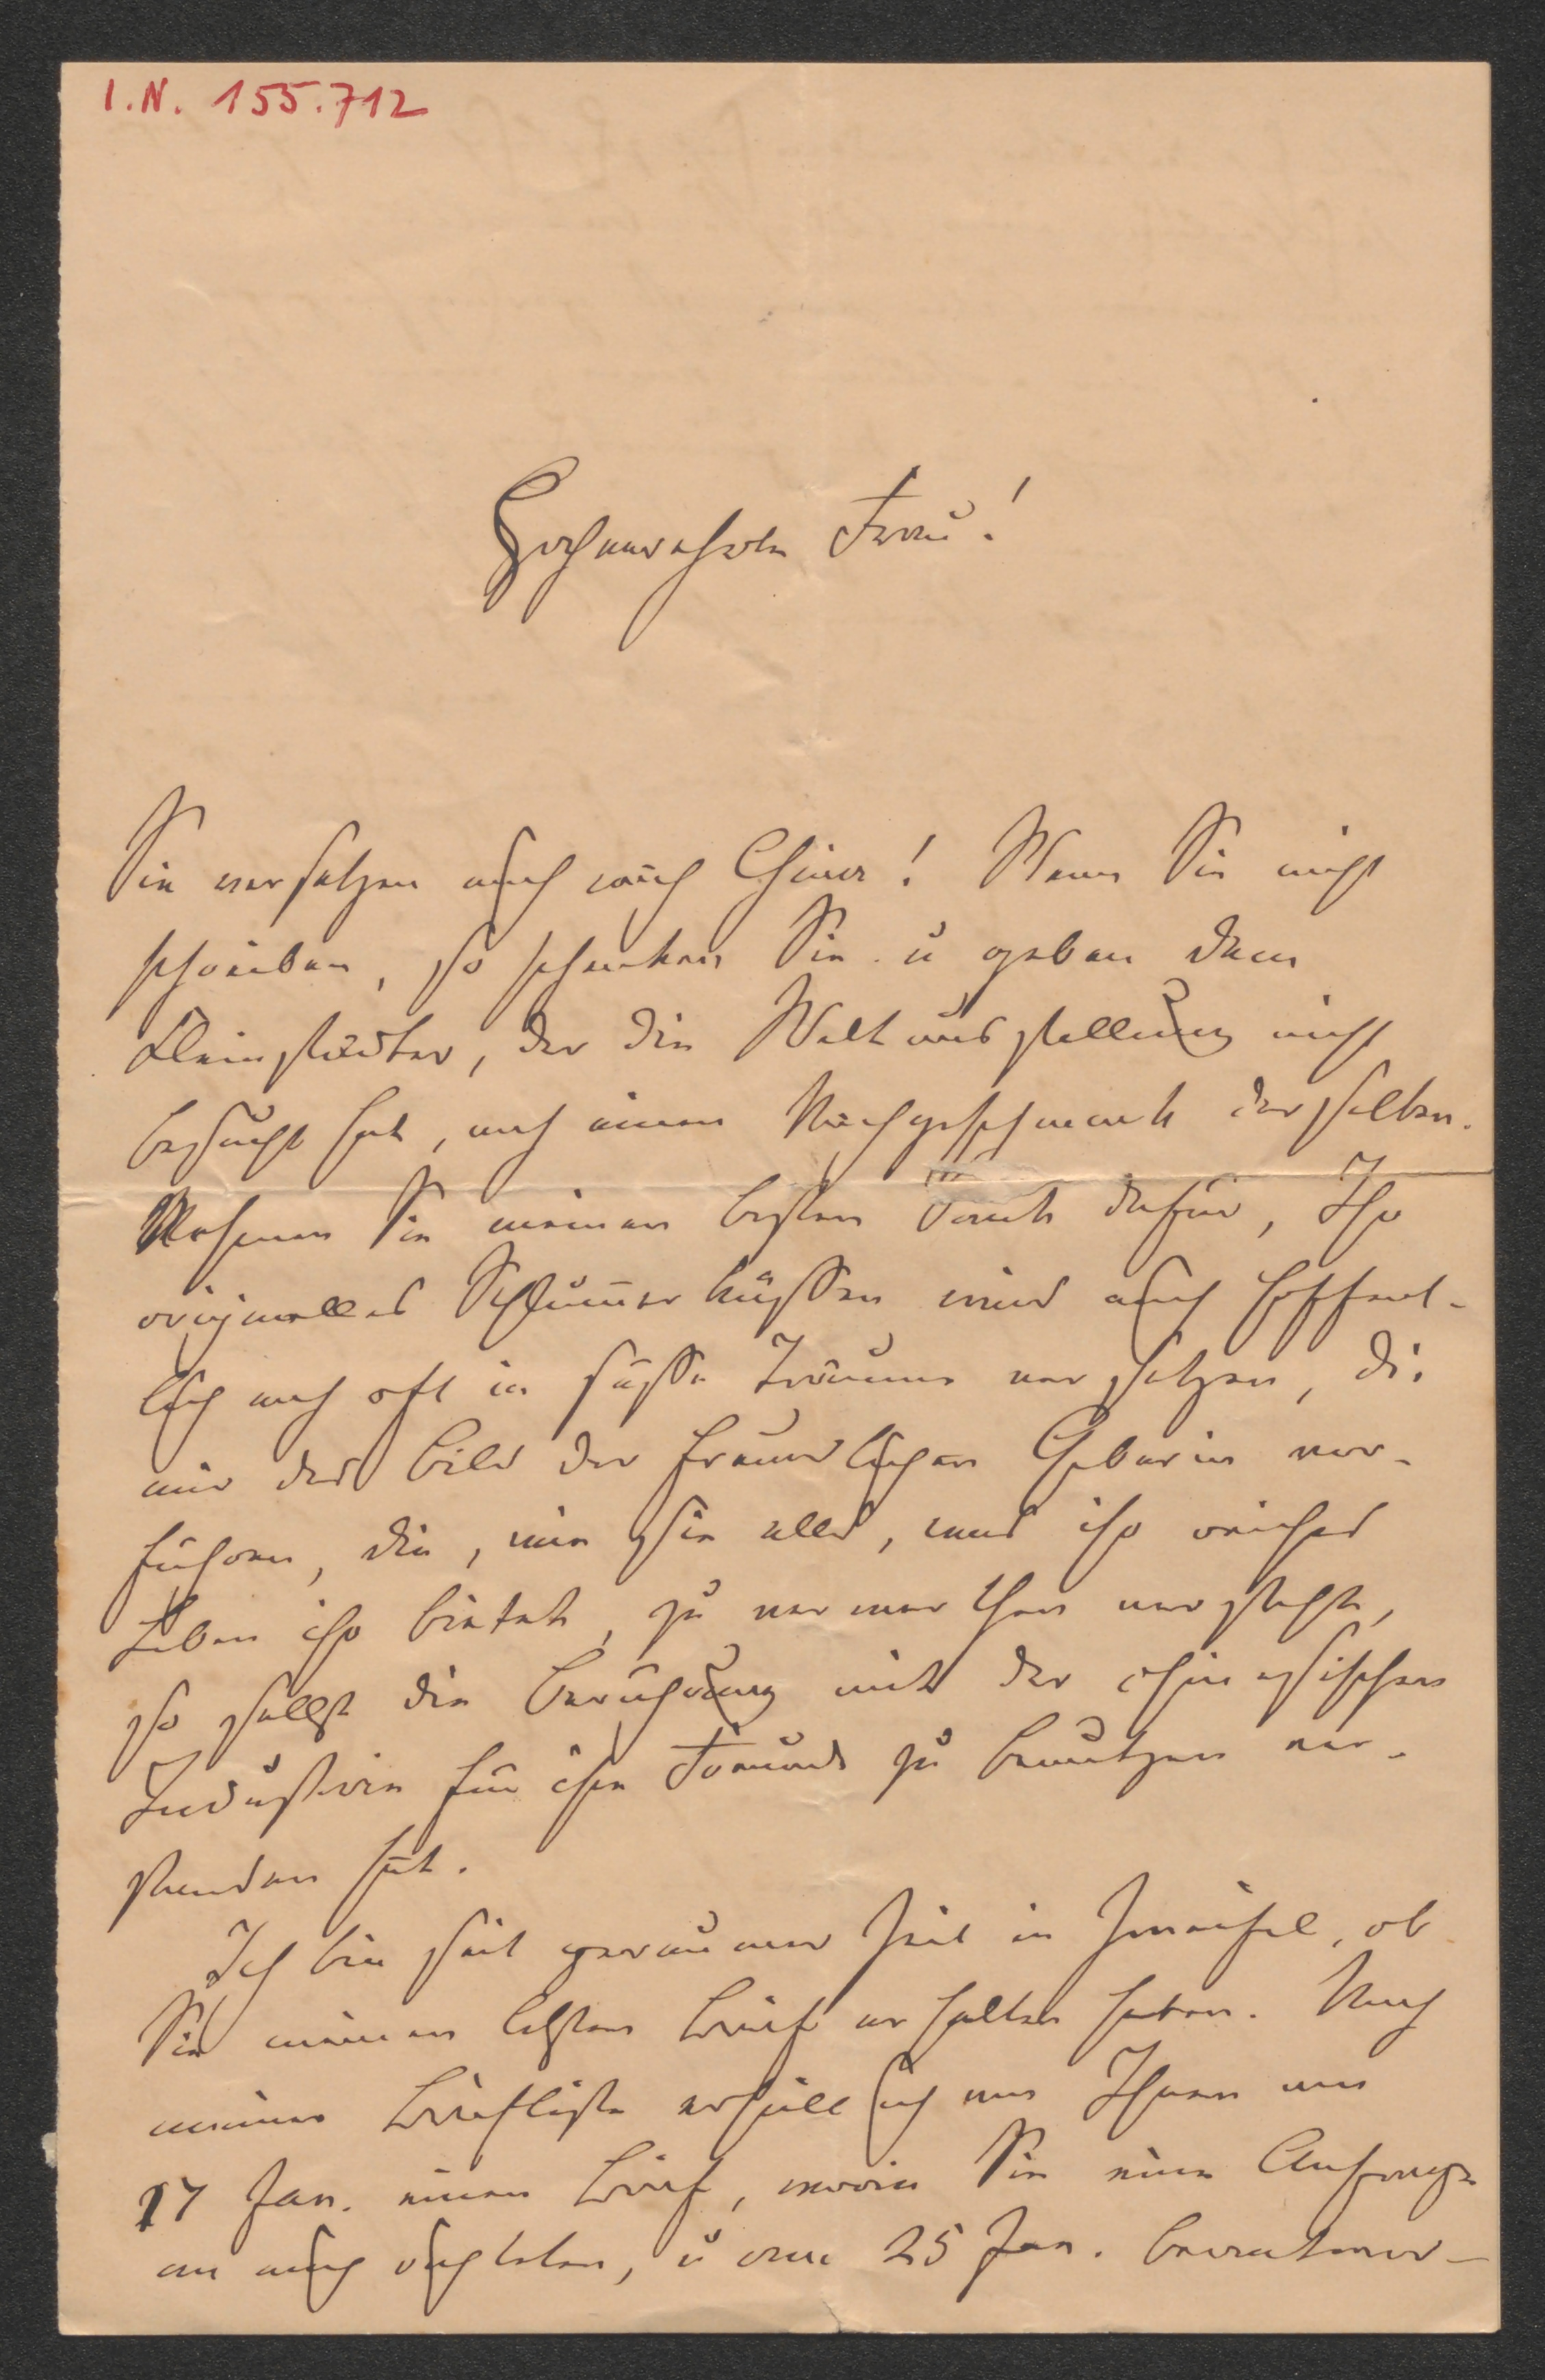 I.N. 155.712
Hochverehrte Frau!
Sie versetzen mich nach China! Wenn Sie nicht
schreiben, so schenken Sie u geben dem
Kleinstädter, der die Weltausstellung nicht
besucht hat, noch einen Nachgeschmack derselben.
Nehmen Sie meinen besten Dank dafür, Ihr
originelles Schlummerkissen wird mich hoffent-
lich noch oft in süsse Träume versetzen, die
mir das Bild der freundlichen Geberin vor-
führen, die, wie sie alles, was ihr reiches
Leben ihr bietet, zu verwerthen versteht,
so selbst die Berührung mit der chinesischen
Industrie für ihre Freunde zu benutzen ver-
standen hat.
Ich bin seit geraumer Zeit in Zweifel, ob
Sie meinen letzten Brief erhalten haben. Nach
meiner Briefliste erhielt ich von Ihnen am
17 Jan. einen Brief, worin Sie eine Anfrage
an mich richteten, u am 25 Jan. beantwor-